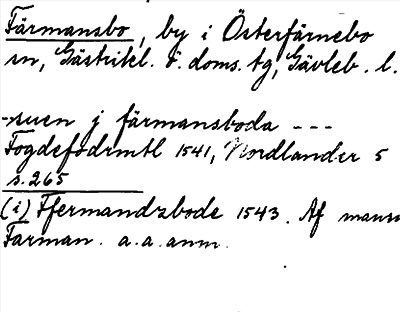 Färmansbo, by i Österfärnebo
sn, Gästrikl. ö. doms. tg, Gävleb. l.
suen j färmansboda ---
Fogdefodrmtl 1541, Nordlander 5
s. 265
(i) Ffermandzbode 1543. Af mansn
Farman. a. a. anm.